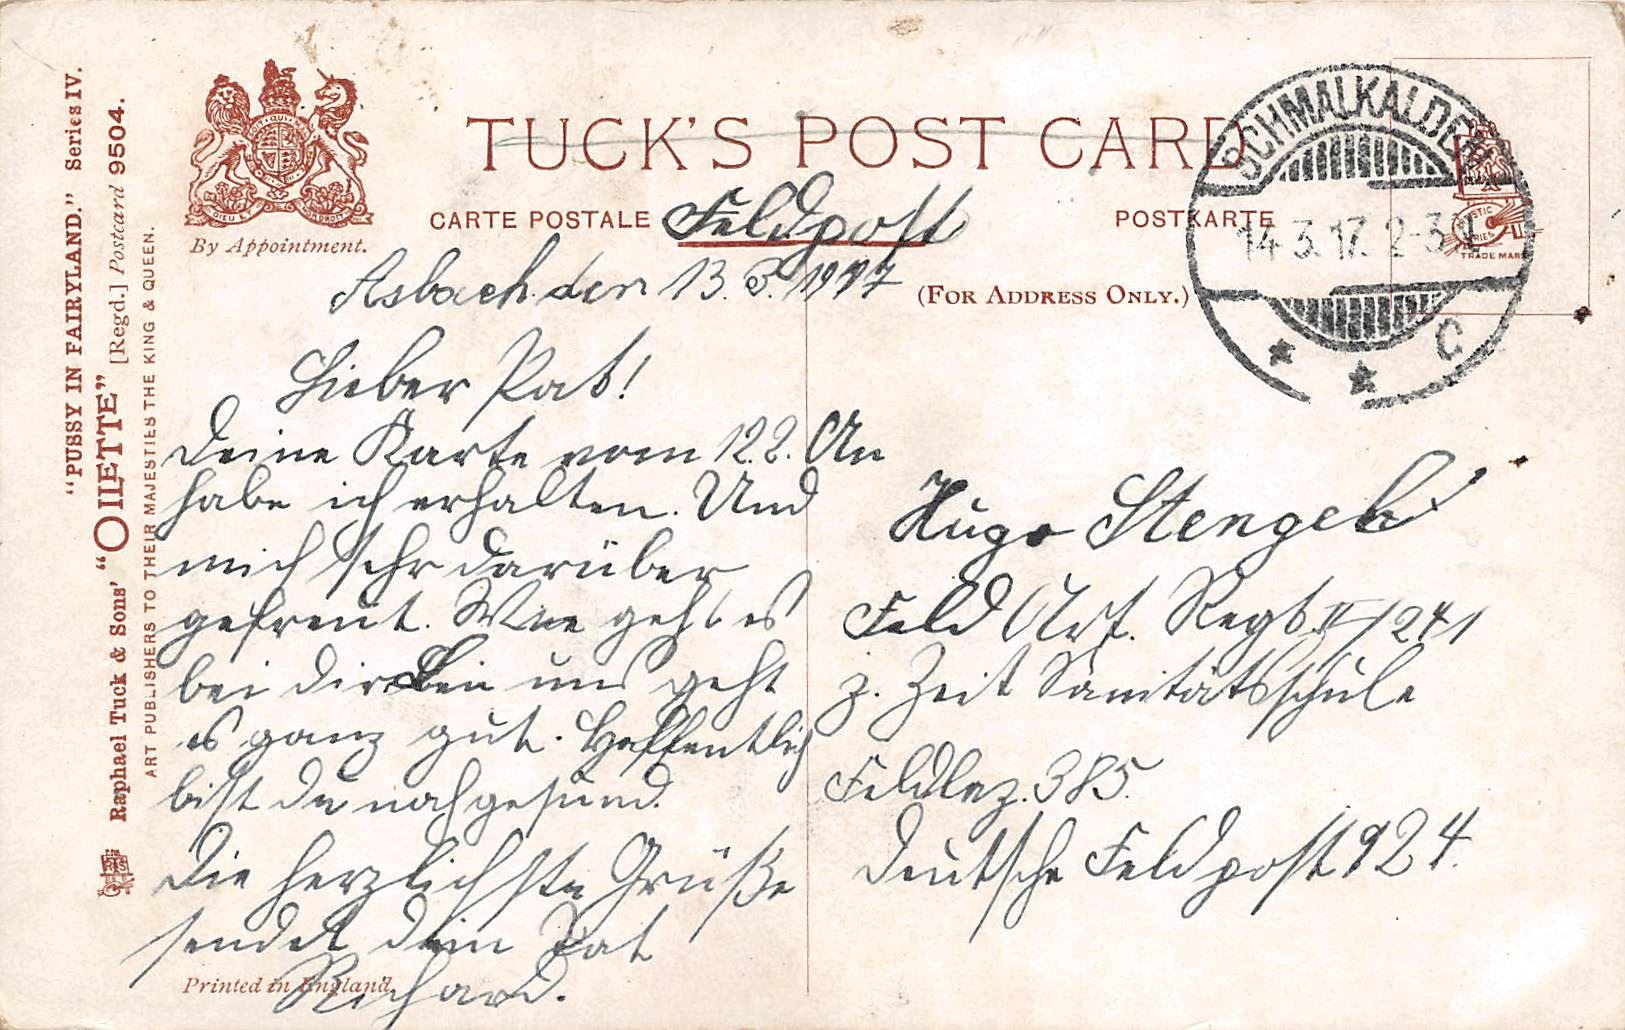 "PUSSY IN FAIRYLAND." Series IV.
Raphael Tuck & Sons' "OILETTE" [Regd.] Postcard 9504.
ART PUBLISHERS TO THEIR MAJESTIES THE KING & QUEEN.
By Appointment.
TUCK'S POST CARD
CARTE POSTALE
POSTKARTE
Feldpost
(FOR ADDRESS ONLY.)
SCHMALKALDEN
14.3.17. 2-3
C
TRADE MARK
Asbach den 13. 3. 1917
Lieber Pat!
Deine Karte vom 12.2. An
habe ich erhalten. Und
mich sehr darüber
gefreut. Wie geht es
bei dir Bei uns geht
es ganz gut. Hoffentlich
bist du noch gesund.
Die herzlichste Grüße
sendet dein Pat
Richard.
Hugo Stengel
Feld Art. Regt II/241
z. Zeit Sanitätsschule
Feldlaz. 385.
Deutsche Feldpost 924.
Printed in England.